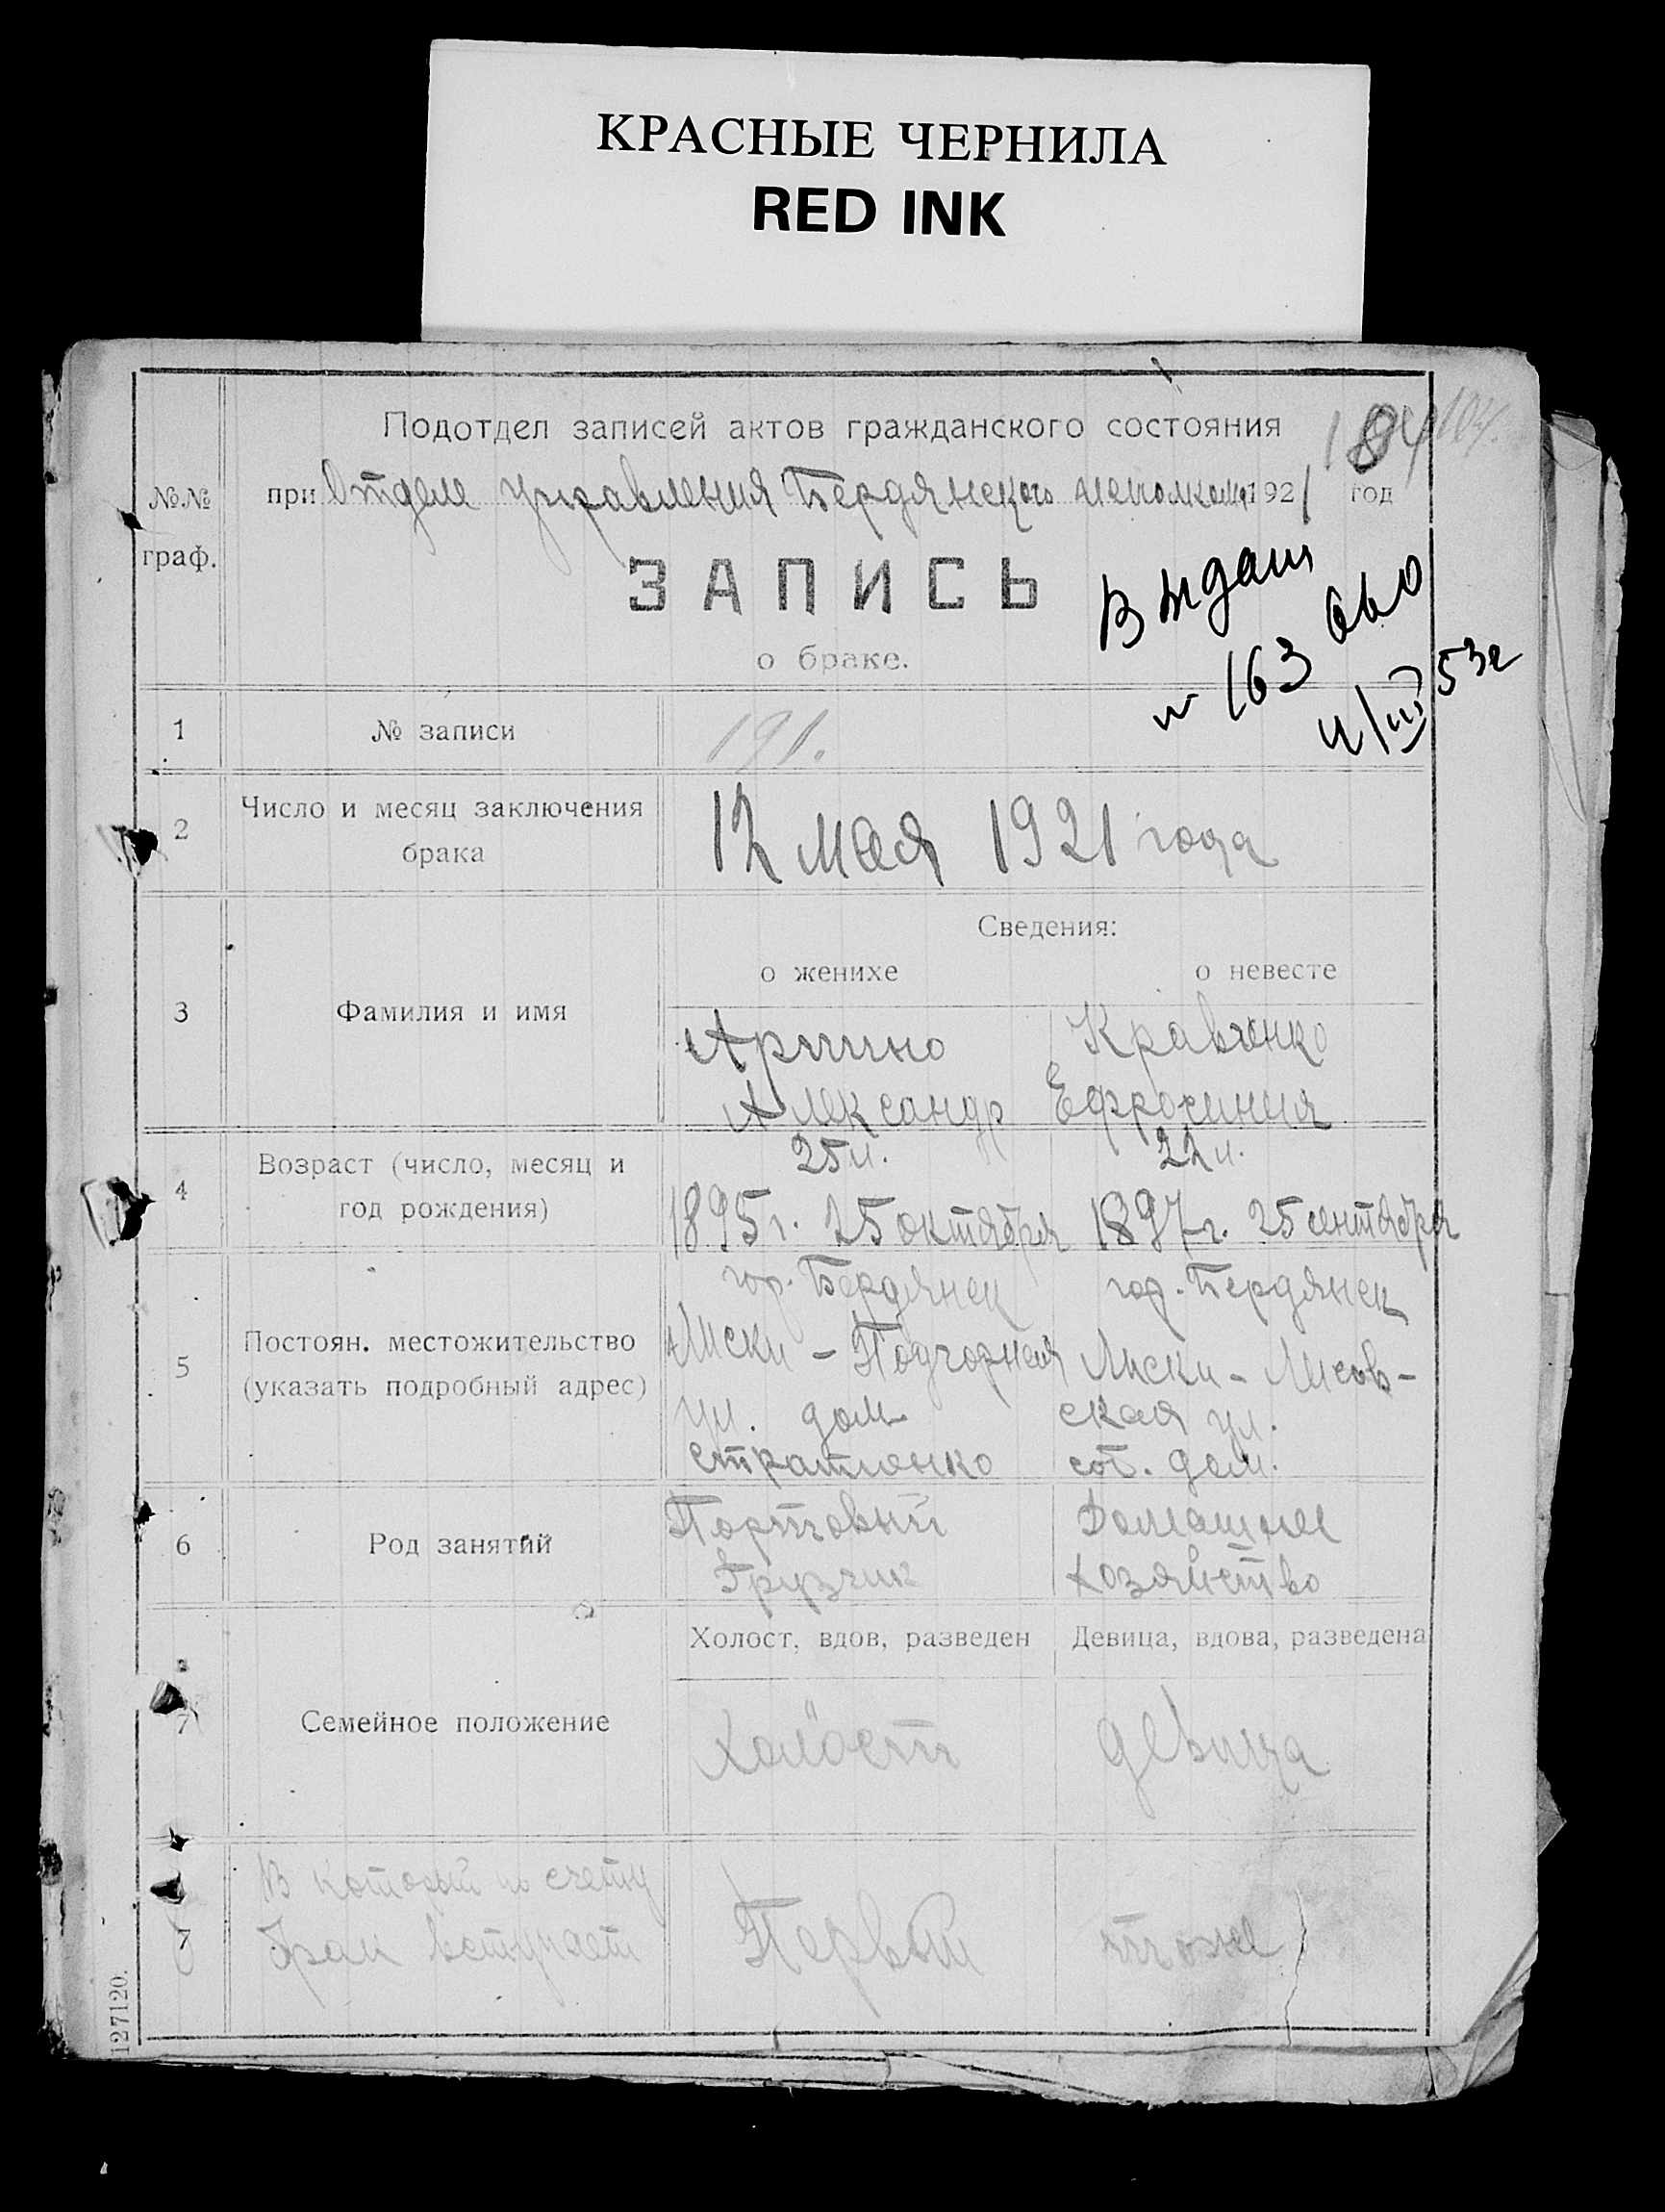 КРАСНЫЕ ЧЕРНИЛА
RED INK
Подотдел записей актов гражданского состояния
184 104.
№№ граф.
при Отделе Управления Бердянского исполкома 1921 год
ЗАПИСЬ
о браке.
Выдан
№ 163
53г
1 № записи 191.
2 Число и месяц заключения брака 12 мая 1921 года
Сведения:
о женихе о невесте
3 Фамилия и имя
Кравченко
Александр Ефросиния
4 Возраст (число, месяц и год рождения)
25 л. 22 л.
1895 г. 25 октября 1897 г. 25 сентября
5 Постоян. местожительство (указать подробный адрес)
гор. Бердянск гор. Бердянск
Лиски - Подгорная Лиски - Лисов-
ул. дом ская ул.
соб. дом.
6 Род занятий
Портовый Домашнее
Грузчик хозяйство
Холост, вдов, разведен Девица, вдова, разведена
7 Семейное положение
Холост девица
7 В который по счету
брак вступает Первый тоже
127120.